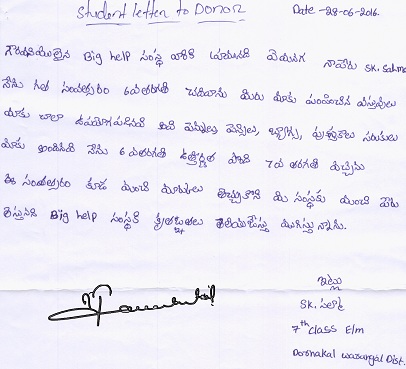 Student letter to Donor
Date - 28-06-2016.
గౌరవనియులైన Big help సంస్థ వారికి యమునది ఏమనగ నాపేరు SK. Salma
నేను గత సంవత్సరం 6వతరగతి చదివాను మీరు మాకు పంపించిన వస్తువులు
మాకు చాలా ఉపయోగపడినవి అవి పెన్నులు పెన్సిలు, బ్యాగ్స్, పుస్తకాలు
మాకు అందినవి నేను 6 వతరగతి ఉత్తీర్ణత పొంది 7వ తరగతి వచ్చాను
ఈ సంవత్సరం కూడ మంచి మార్కులు తెచ్చుకొని మీ సంస్థకు మంచి పేరు
తెస్తానని Big help సంస్థకి కృతజ్ఞతలు తెలియజేస్తు ముగిస్తున్నాను.
ఇట్లు
SK. సల్మా
7th class E/m
Dornakal warangal Dist.